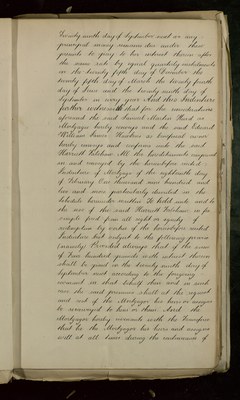 Twenty ninth day of September next or any
principal money remain due under these
presents to pay to her interest thereon after
the same rate by equal quarterly instalments
on the twenty fifth day of December the
twenty fifth day of March the twenty fourth
day of June and the twenty ninth day of
September in every year And this Indenture
further witnesseth that for the consideration
aforesaid the said Samuel Hood as
Mortgagor hereby conveys and the said Edward
William as hereby
conveys and confirms unto the said
Harriett All the hereditaments comprised
in and conveyed by the hereinbefore recited
Indenture of Mortgage of the eighteenth day
of February One thousand nine hundred and
five and more particularly described in the
Schedule hereunder written To hold unto and to
the use of the said Harriett in fee
simple freed from all right or equity of
redemption by virtue of the hereinbefore recited
Indenture but subject to the following proviso
(namely) Provided always that if the sum
of Two hundred pounds with interest thereon
shall be paid on the twenty ninth day of
September next according to the foregoing
covenant in that behalf then and in such
case the said premises shall at the request
and cost of the Mortgagor his heirs or assigns
be reconveyed to him or them And the
Mortgagor hereby covenants with the
that he the Mortgagor his heirs and assigns
will at all times during the continuance of